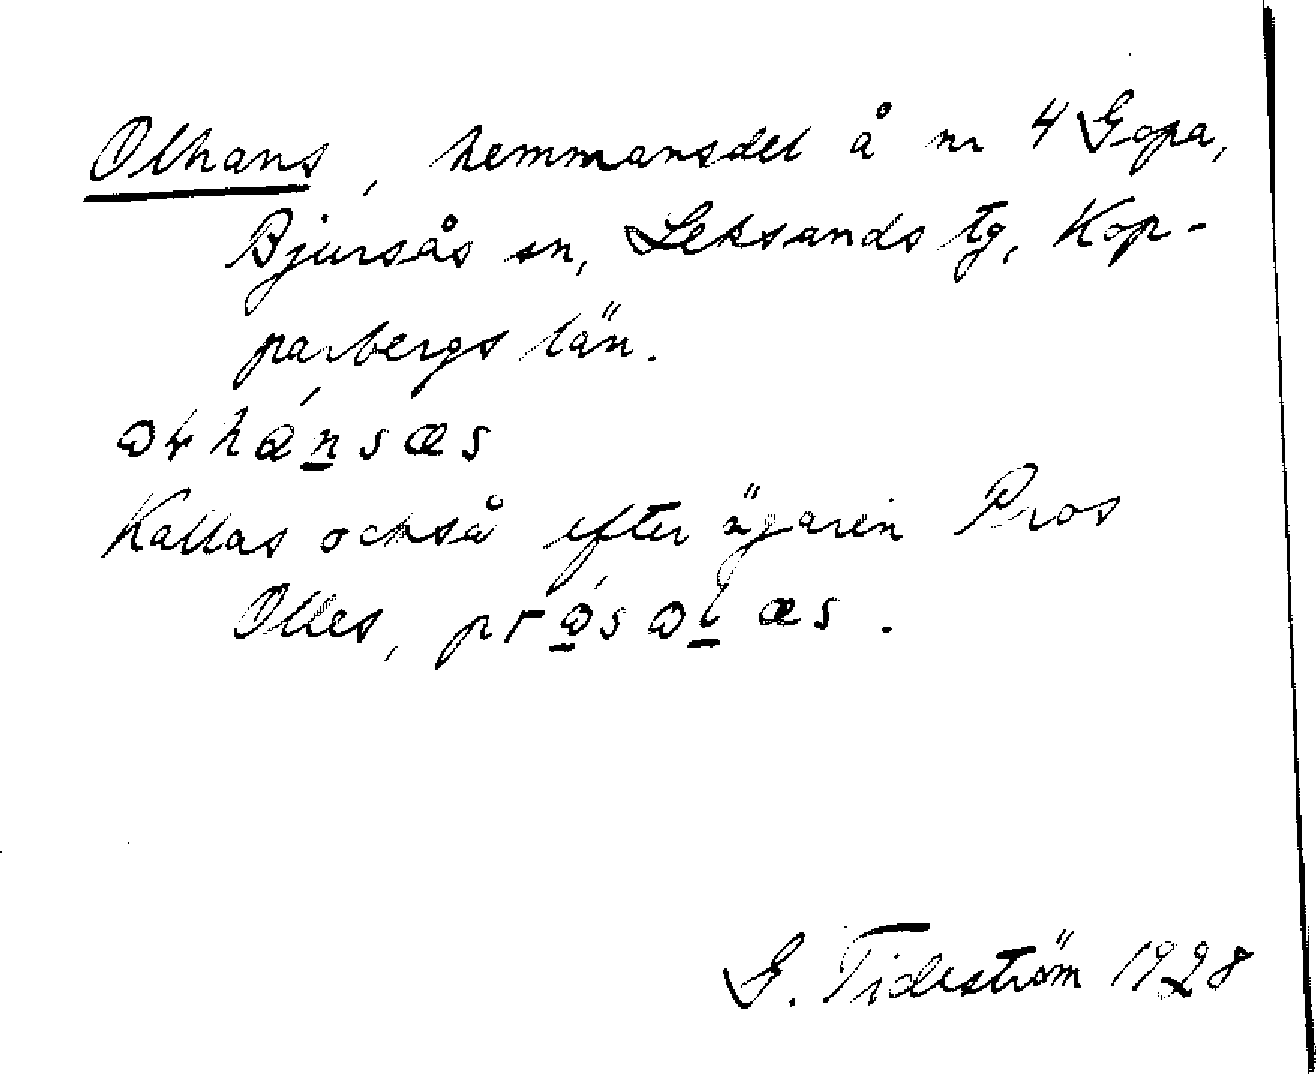 Olhans, hemmansdel å nr 4 Gopa,
Bjursås sn, Leksands tg, Kop-
parbergs län.
Kallas också efter ägaren Pros
Olles,
G. Tideström 1928